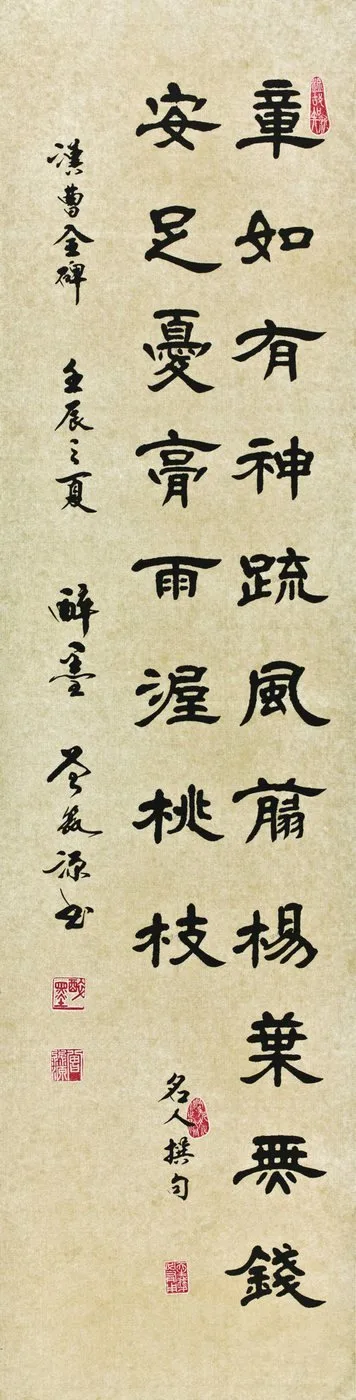 章如有神疏風翦楊葉無錢
安足憂膏雨渥桃枝
名人撰句
漢曹全碑 壬辰之夏 醉墨 曾敖源書
醉墨